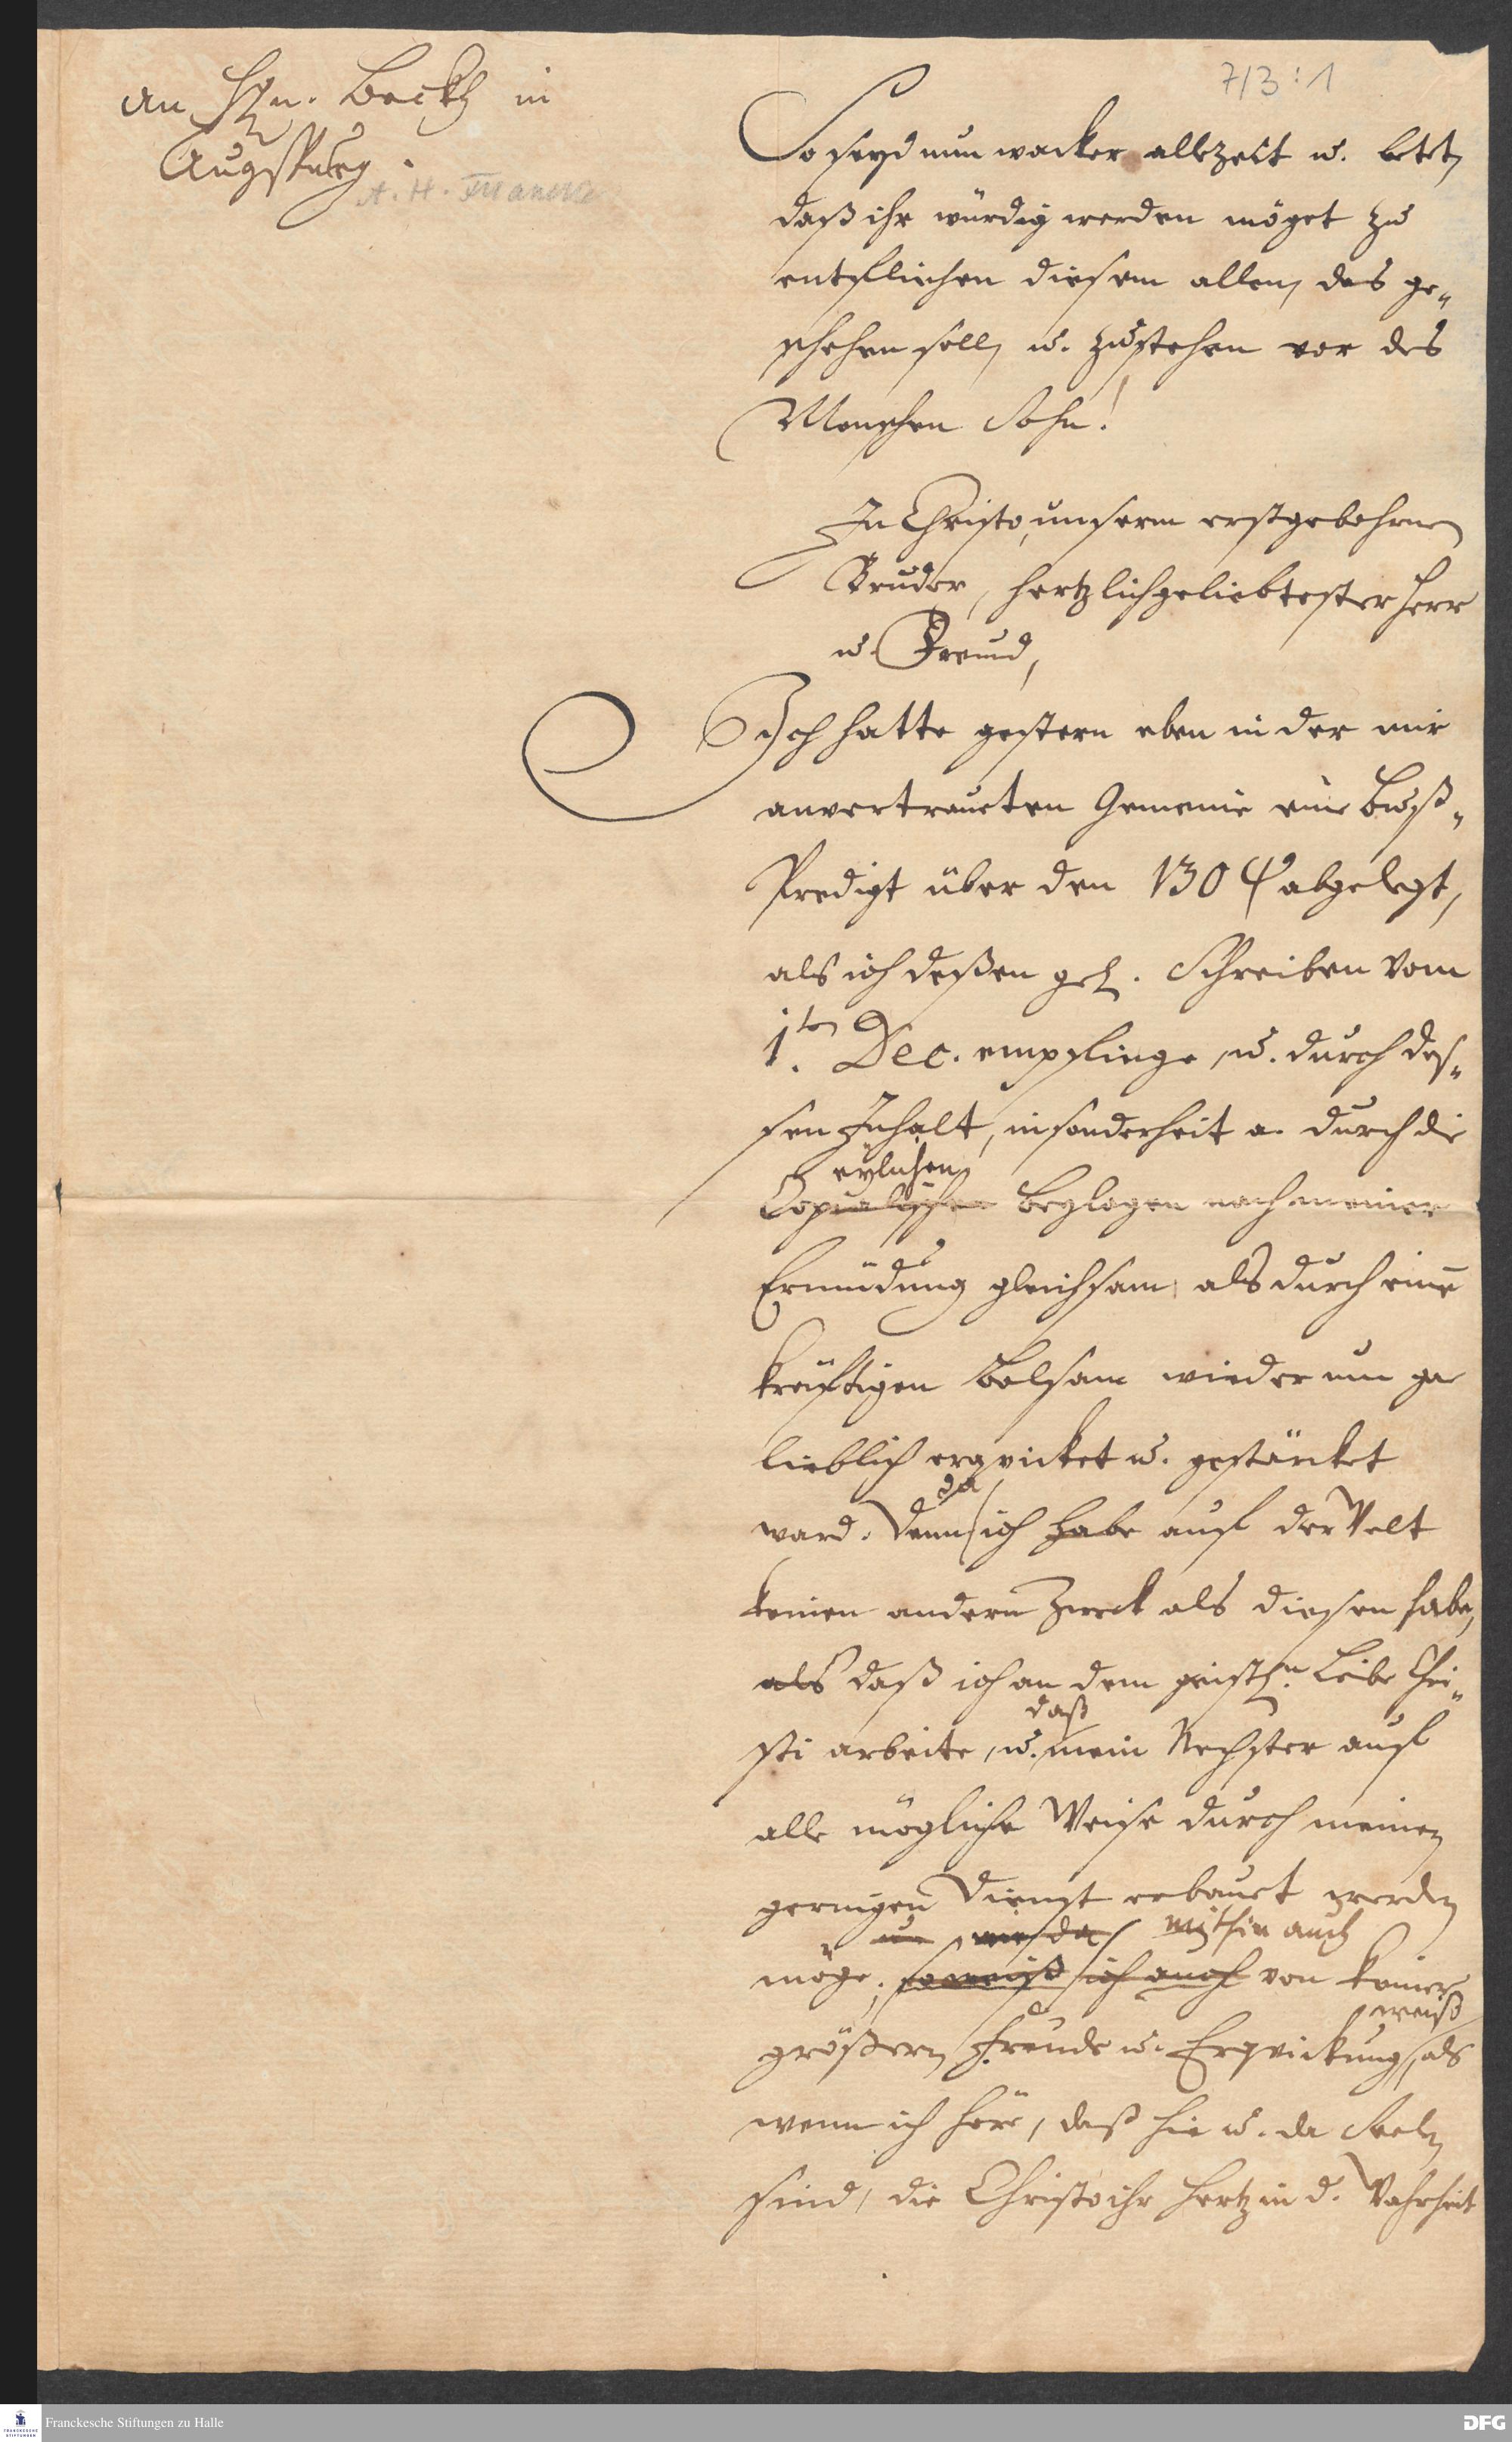 an Hrn. Beckh in
Augspurg.
A. H. Francke
7/3 : 1
So seyd nun wacker allezeit u. betet,
daß ihr würdig werden möget zu
entfliehen diesem allen, das ge-
schehen soll, u. zustehen vor des
Menschen Sohn!
In Christo, unserm erstgebohrnen
Bruder, hertzlichgeliebtester Herr
u. Freund,
Ich hatte gestern eben in der mir
anvertraueten Gemeine eine Buß-
Predigt über den 130 Ψ abgelegt,
als ich deßen gel. Schreiben vom
1.ten Dec. empfinge, u. durch des-
sen Inhalt, insonderheit a. durch die
Copialischen beylagen nach meiner
Ermüdung gleichsam als durch einen
kräfftigen Balsam wiederum gar
lieblich erqvicket u. gestärcket
ward. Denn da ich habe auf der Welt
keinen andern Zweck als diesen habe,
als daß ich an dem geistl.n Leibe Chri-
sti arbeite, u. daß mein Nechster auf
alle mögliche Weise durch meinen
geringen Dienst erbauet werden
mithin auch
möge; so weiß ich auch von keiner
weiß
größern Freude u. Erqvickung, als
wenn ich höre, daß hie u. da Seelen
sind, die Christo ihr Hertz in d. Wahrheit
Franckesche Stiftungen zu Halle
DFG